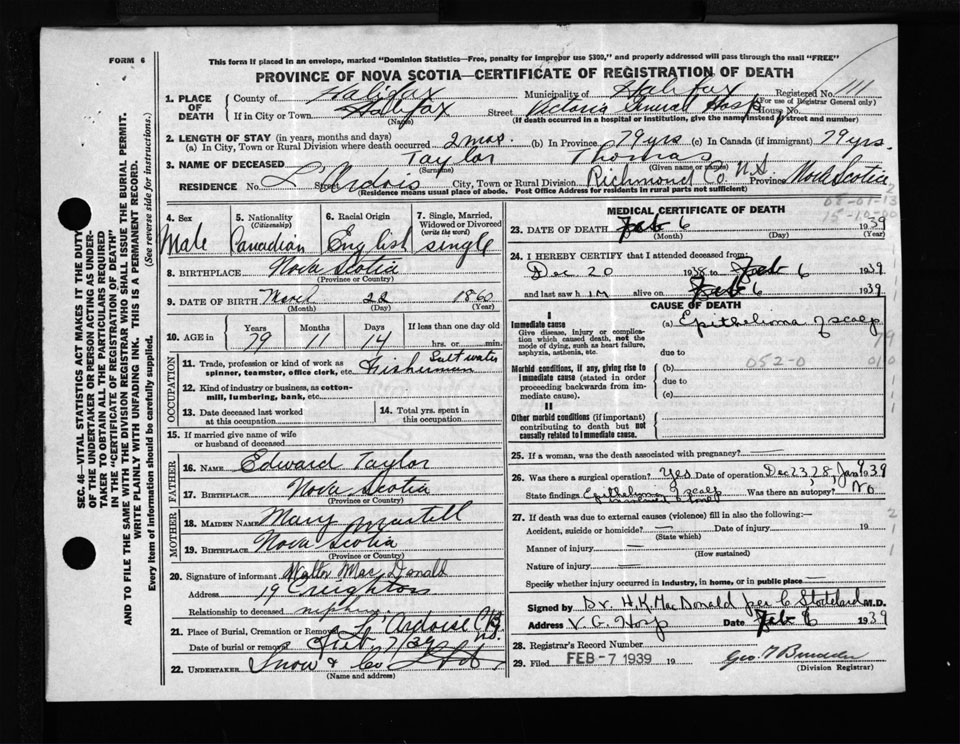 FORM 6
This form if placed in an envelope, marked "Dominion Statistics—Free, penalty for improper use $300," and properly addressed will pass through the mail "FREE"
PROVINCE OF NOVA SCOTIA—CERTIFICATE OF REGISTRATION OF DEATH
SEC. 46—VITAL STATISTICS ACT MAKES IT THE DUTY
OF THE UNDERTAKER OR PERSON ACTING AS UNDER-
TAKER TO OBTAIN ALL THE PARTICULARS REQUIRED
IN THE "CERTIFICATE OF REGISTRATION OF DEATH"
AND TO FILE THE SAME WITH THE DIVISION REGISTRAR WHO SHALL ISSUE THE BURIAL PERMIT.
WRITE PLAINLY WITH UNFADING INK. THIS IS A PERMANENT RECORD.
Every item of information should be carefully supplied. (See reverse side for instructions.)
1. PLACE OF DEATH
County of Halifax Municipality of Halifax Registered No. 111
(For use of Registrar General only)
If in City or Town Halifax Street Victoria General Hosp House No.
(Name) (If death occurred in a hospital or institution, give the name instead of street and number)
2. LENGTH OF STAY (in years, months and days)
(a) In City, Town or Rural Division where death occurred 2 mos. (b) In Province 79 yrs (c) In Canada (if immigrant) 79 yrs.
3. NAME OF DECEASED Taylor Thomas
(Surname) (Given name or names)
RESIDENCE No. Street L'Ardois City, Town or Rural Division Richmond Co. N.S. Province Nova Scotia
(Residence means usual place of abode. Post Office Address for residents in rural parts not sufficient)
4. Sex Male
5. Nationality (Citizenship) Canadian
6. Racial Origin English
7. Single, Married, Widowed or Divorced (write the word) single
8. BIRTHPLACE Nova Scotia
(Province or Country)
9. DATE OF BIRTH March 22 1860
(Month) (Day) (Year)
10. AGE in Years 79 Months 11 Days 14 If less than one day old
hrs. or min.
OCCUPATION
11. Trade, profession or kind of work as spinner, teamster, office clerk, etc. Salt water Fisherman
12. Kind of industry or business, as cotton-mill, lumbering, bank, etc.
13. Date deceased last worked at this occupation
14. Total yrs. spent in this occupation
15. If married give name of wife or husband of deceased
FATHER
16. NAME Edward Taylor
17. BIRTHPLACE Nova Scotia
(Province or Country)
MOTHER
18. MAIDEN NAME Mary Martell
19. BIRTHPLACE Nova Scotia
(Province or Country)
20. Signature of informant Walter MacDonald
Address 19 Creighton
Relationship to deceased
21. Place of Burial, Cremation or Removal L'Ardoise C.B.
Date of burial or removal Feb 7/39
22. UNDERTAKER Snow & Co
(Name and address)
MEDICAL CERTIFICATE OF DEATH
23. DATE OF DEATH Feb 6 1939
(Month) (Day) (Year)
24. I HEREBY CERTIFY that I attended deceased from:
Dec 20 1938 to Feb 6 1939
and last saw him alive on Feb 6 1939
CAUSE OF DEATH
I
Immediate cause
Give disease, injury or complication which caused death, not the mode of dying, such as heart failure, asphyxia, asthenia, etc.
(a) Epithelioma of scalp
due to
Morbid conditions, if any, giving rise to immediate cause (stated in order proceeding backwards from immediate cause).
(b) 052-0
due to
(c)
II
Other morbid conditions (if important) contributing to death but not causally related to immediate cause.
25. If a woman, was the death associated with pregnancy?
26. Was there a surgical operation? Yes Date of operation Dec 23, 28, Jan 9 1939
State findings Epithelioma of scalp Was there an autopsy? No
27. If death was due to external causes (violence) fill in also the following:—
Accident, suicide or homicide? Date of injury 19
(State which)
Manner of injury
(How sustained)
Nature of injury
Specify whether injury occurred in industry, in home, or in public place
Signed by Dr. H.K. MacDonald per C M.D.
Address V. G. Hosp Date Feb 6 1939
28. Registrar's Record Number
29. Filed FEB -7 1939 19
(Division Registrar)